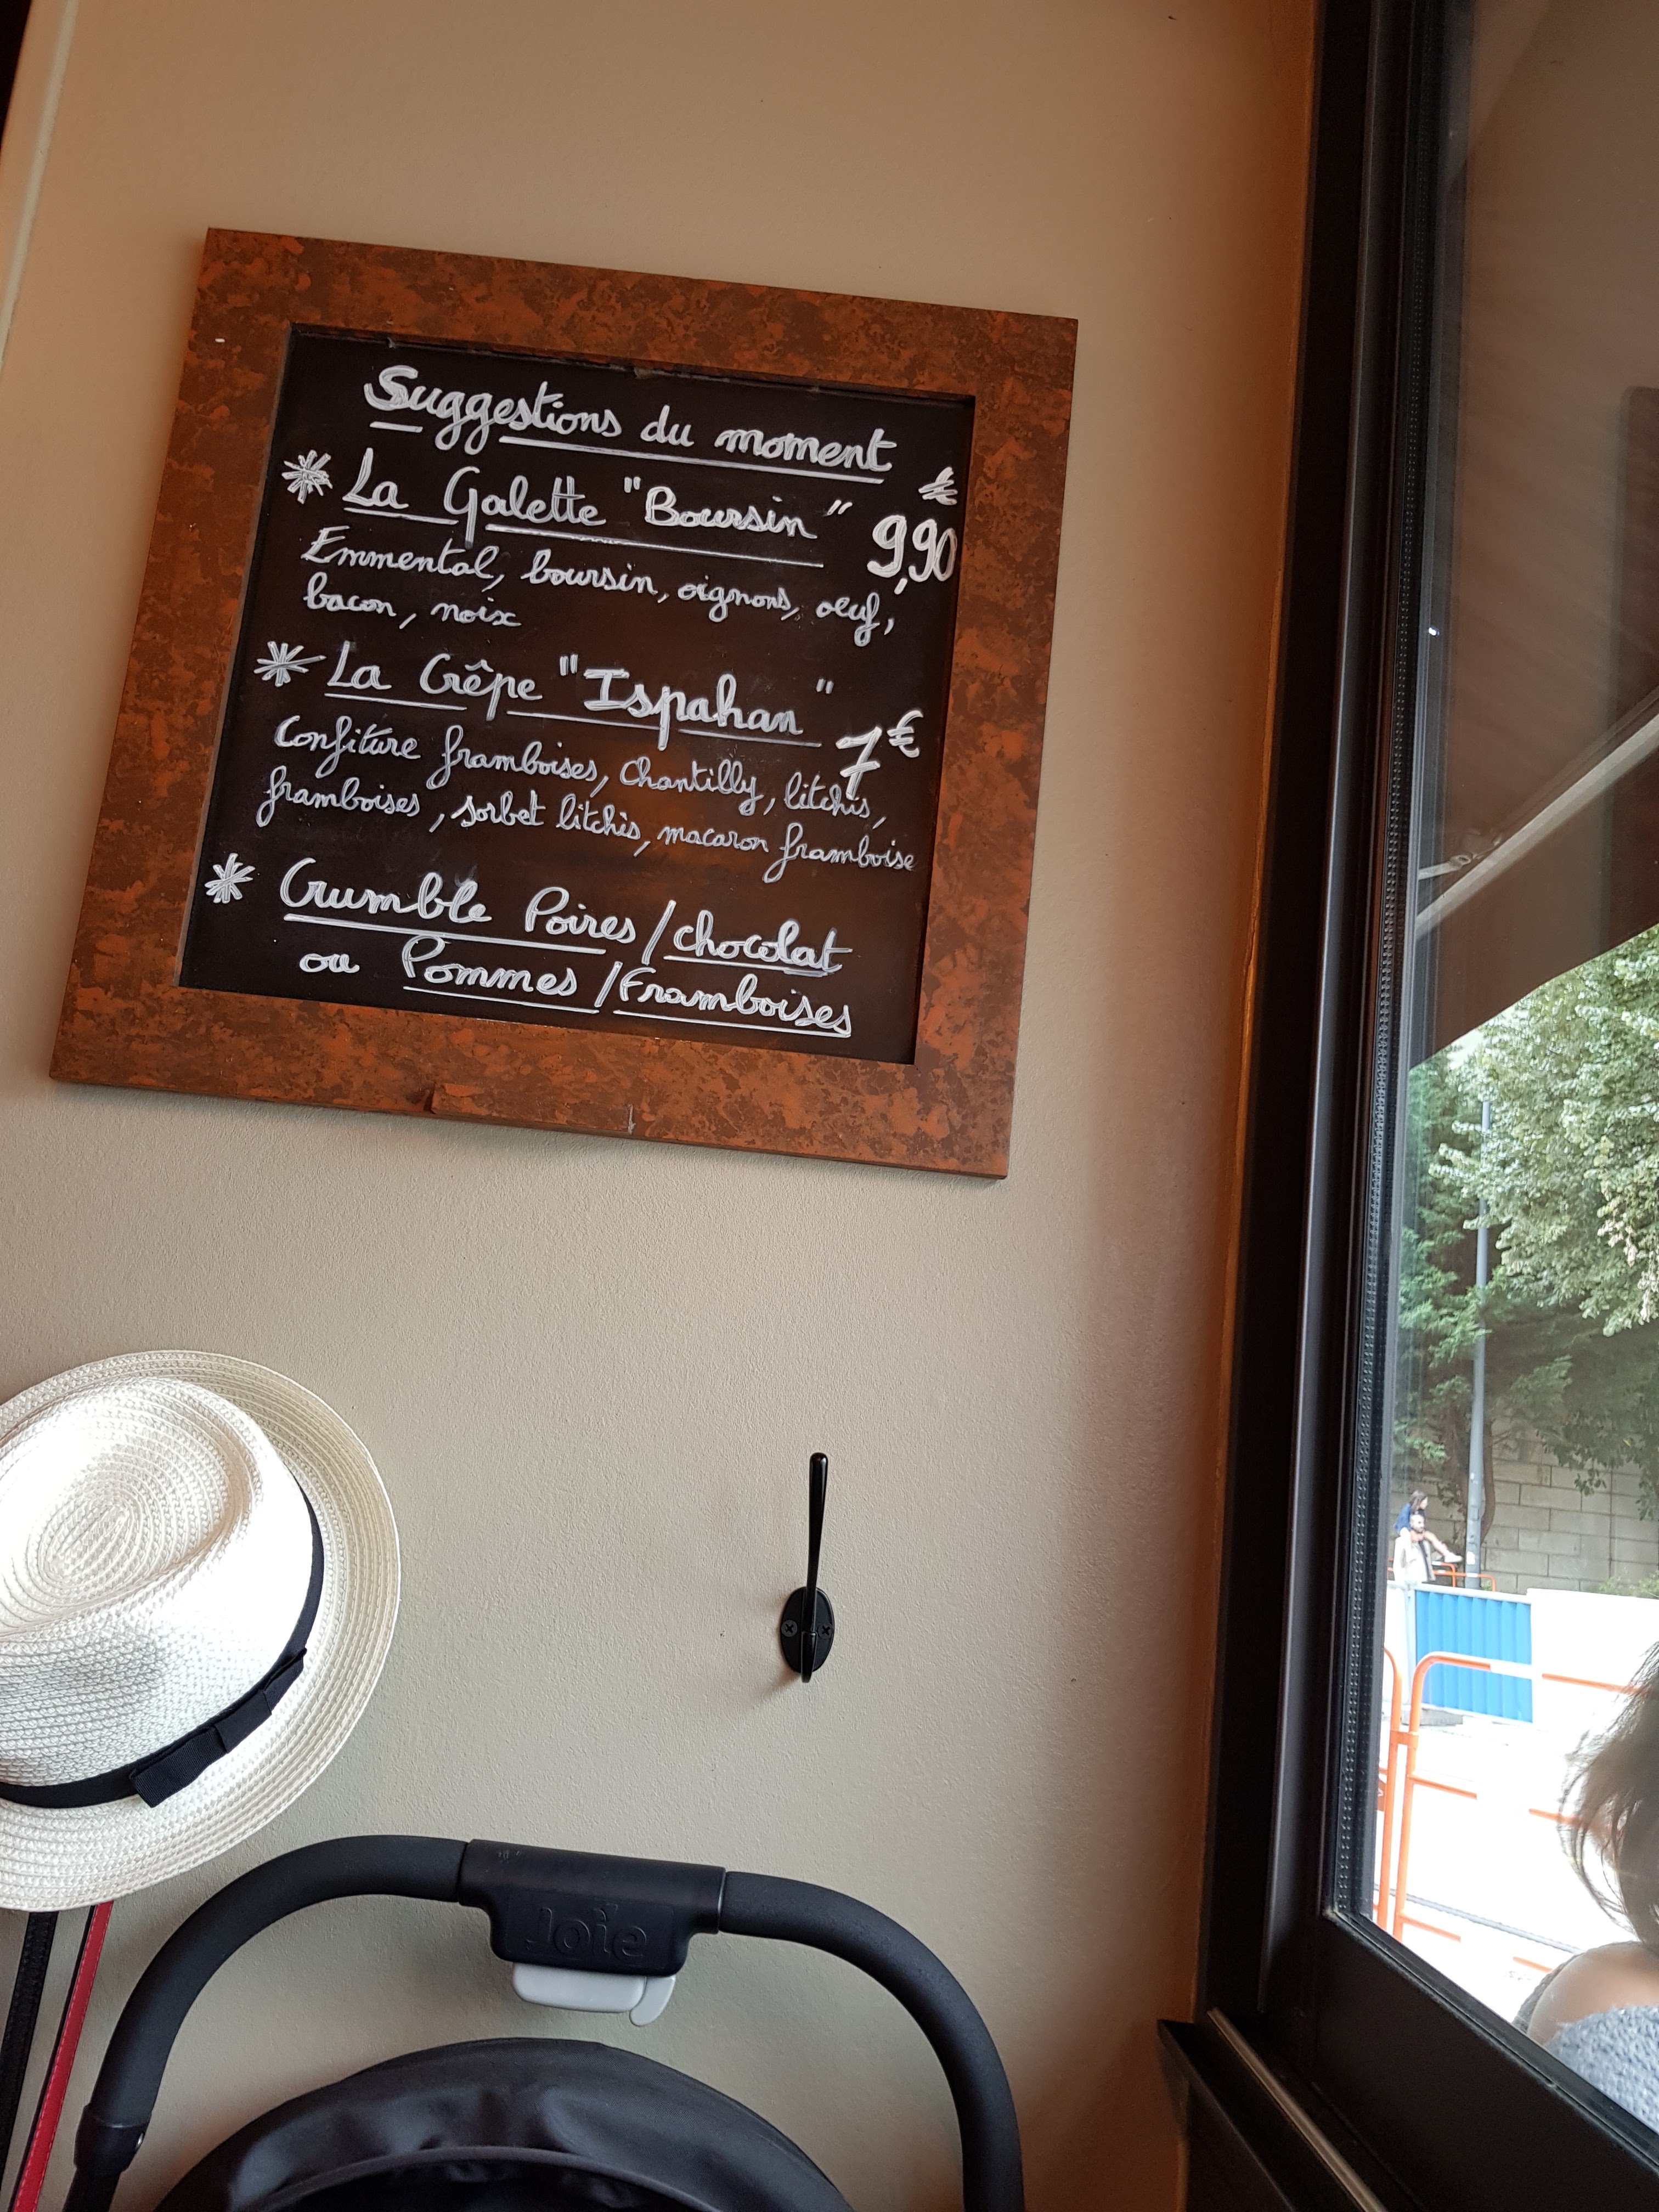 Suggestions du moment
* La Galette "Boursin" 9,90 €
Emmental, boursin, oignons, oeuf,
bacon, noix
* La Crêpe "Ispahan" 7€
Confiture framboises, Chantilly, litchis,
framboises, sorbet litchis, macaron framboise
* Crumble Poires/chocolat
ou Pommes/Framboises
Joie